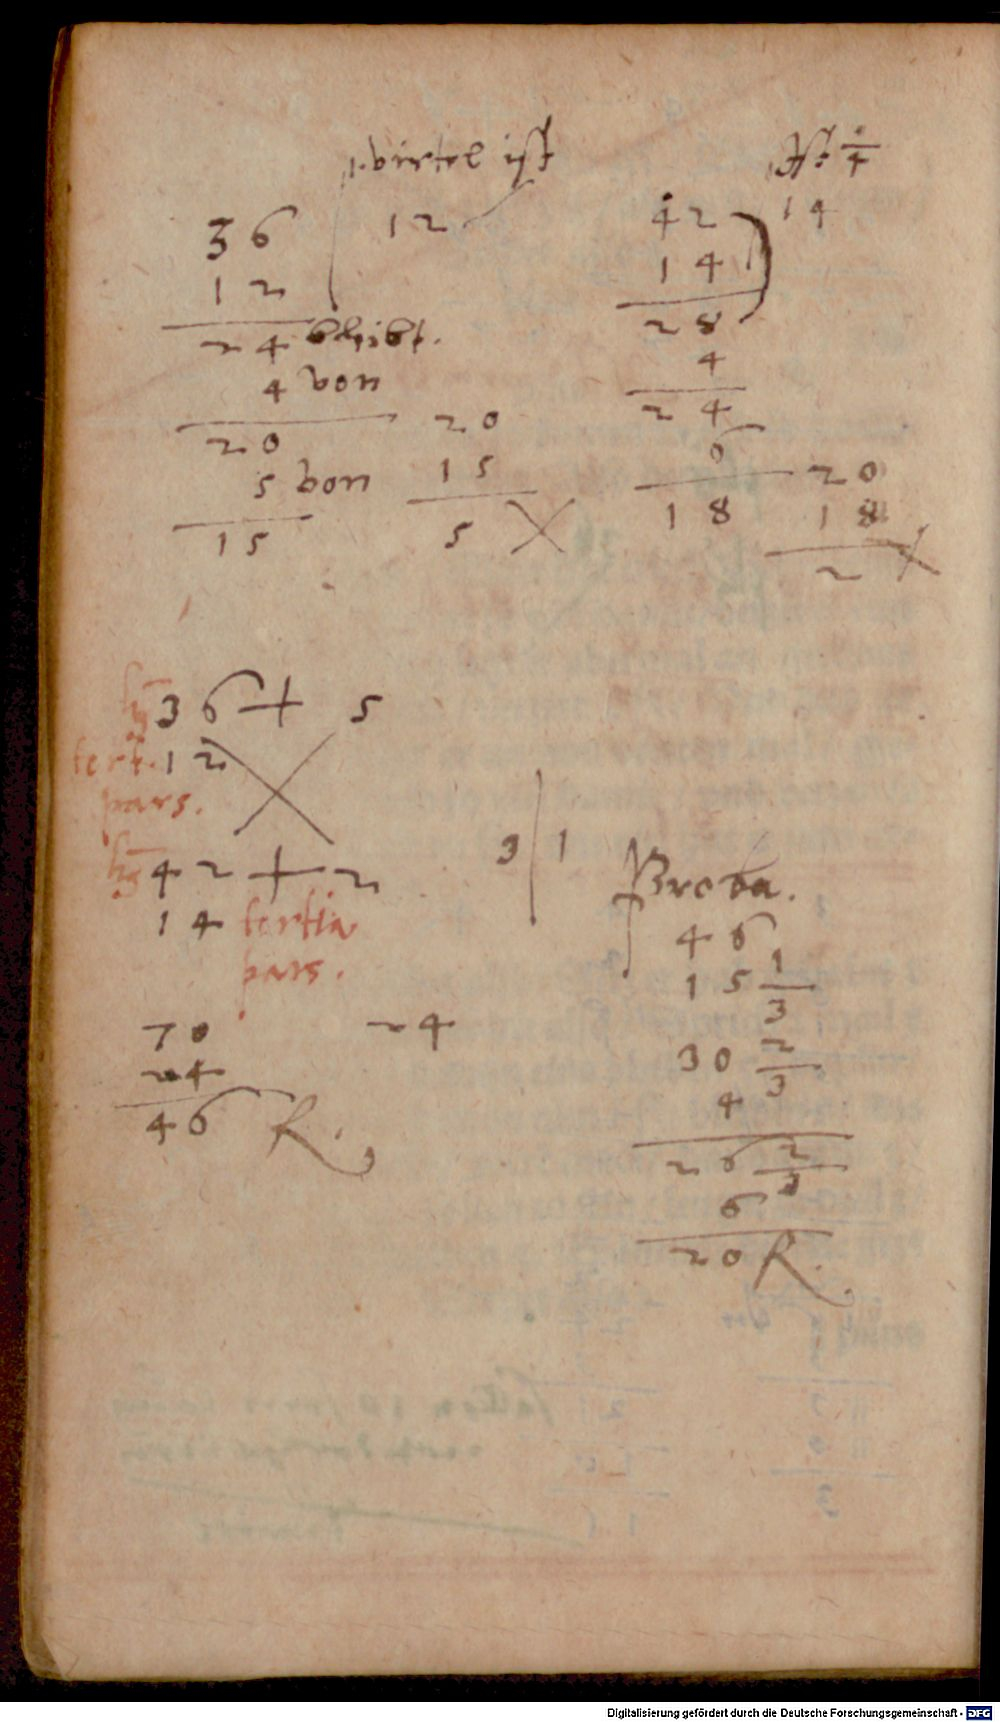 1 virtel ist
36 12
12
24 blibt.
4 von
20
5 von
15
20
15
5
1/4
42 14
14
28
4
24
6
18
20
18
2
36 + 5
tert. 12
pars.
42 + 2
14 tertia
pars.
3 | 1
70 24
24
46 R.
Proba.
46
15 1/3
30 2/3
4
26 2/3
6
20 R.
Digitalisierung gefördert durch die Deutsche Forschungsgemeinschaft - DFG